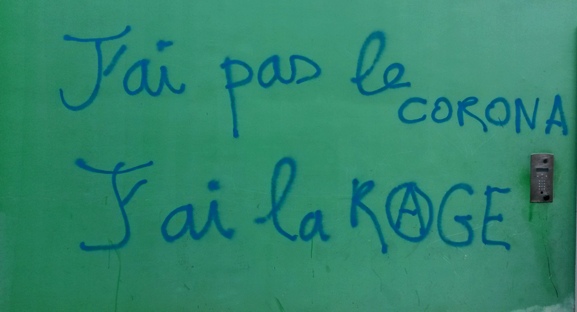 J'ai pas le CORONA
J'ai la RAGE